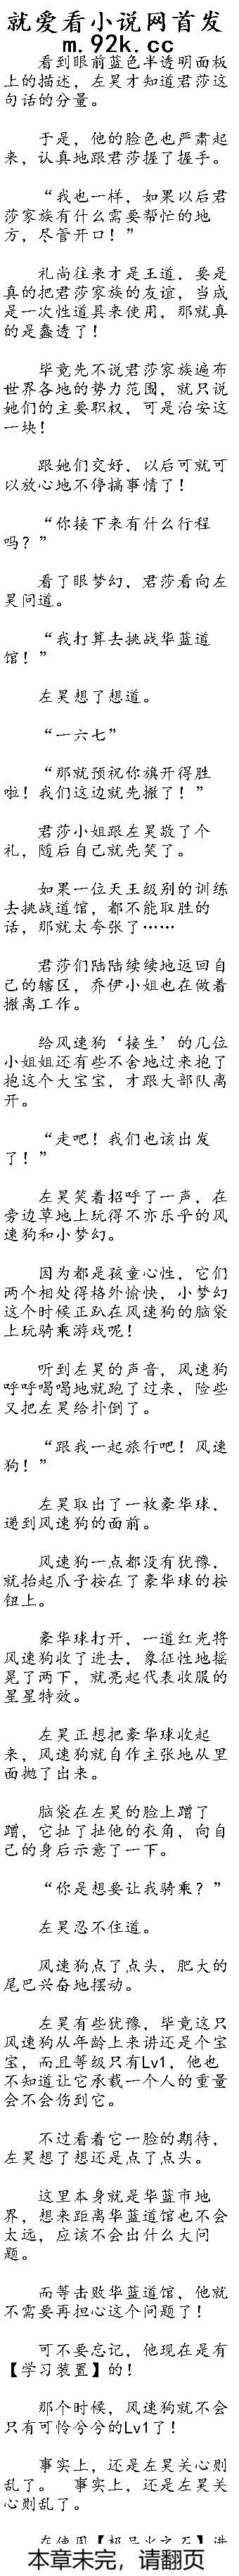 就爱看小说网首发
m.92k.cc
看到眼前蓝色半透明面板
上的描述，左昊才知道君莎这
句话的分量。
于是，他的脸色也严肃起
来，认真地跟君莎握了握手。
“我也一样，如果以后君
莎家族有什么需要帮忙的地
方，尽管开口！”
礼尚往来才是王道，要是
真的把君莎家族的友谊，当成
是一次性道具来使用，那就真
的是蠢透了！
毕竟先不说君莎家族遍布
世界各地的势力范围，就只说
她们的主要职权，可是治安这
一块！
跟她们交好，以后可就可
以放心地不停搞事情了！
“你接下来有什么行程
吗？”
看了眼梦幻，君莎看向左
昊问道。
“我打算去挑战华蓝道
馆！”
左昊想了想道。
“一六七”
“那就预祝你旗开得胜
啦！我们这边就先撤了！”
君莎小姐跟左昊敬了个
礼，随后自己就先笑了。
如果一位天王级别的训练
去挑战道馆，都不能取胜的
话，那就太夸张了……
君莎们陆陆续续地返回自
己的辖区，乔伊小姐也在做着
撤离工作。
给风速狗‘接生’的几位
小姐姐还有些不舍地过来抱了
抱这个大宝宝，才跟大部队离
开。
“走吧！我们也该出发
了！”
左昊笑着招呼了一声，在
旁边草地上玩得不亦乐乎的风
速狗和小梦幻。
因为都是孩童心性，它们
两个相处得格外愉快，小梦幻
这个时候正趴在风速狗的脑袋
上玩骑乘游戏呢！
听到左昊的声音，风速狗
呼呼喝喝地就跑了过来，险些
又把左昊给扑倒了。
“跟我一起旅行吧！风速
狗！”
左昊取出了一枚豪华球，
递到风速狗的面前。
风速狗一点都没有犹豫，
就抬起爪子按在了豪华球的按
钮上。
豪华球打开，一道红光将
风速狗收了进去，象征性地摇
晃了两下，就亮起代表收服的
星星特效。
左昊正想把豪华球收起
来，风速狗就自作主张地从里
面抛了出来。
脑袋在左昊的脸上蹭了
蹭，它扯了扯他的衣角，向自
己的身后示意了一下。
“你是想要让我骑乘？”
左昊忍不住道。
风速狗点了点头，肥大的
尾巴兴奋地摆动。
左昊有些犹豫，毕竟这只
风速狗从年龄上来讲还是个宝
宝，而且等级只有Lv1，他也
不知道让它承载一个人的重量
会不会伤到它。
不过看着它一脸的期待，
左昊想了想还是点了点头。
这里本身就是华蓝市地
界，想来距离华蓝道馆也不会
太远，应该不会出什么大问
题。
而等击败华蓝道馆，他就
不需要再担心这个问题了！
可不要忘记，他现在是有
【学习装置】的！
那个时候，风速狗就不会
只有可怜兮兮的Lv1了！
事实上，还是左昊关心则
乱了。 事实上，还是左昊关
心则乱了。
在使用【极品火之石】进
本章未完，请翻页